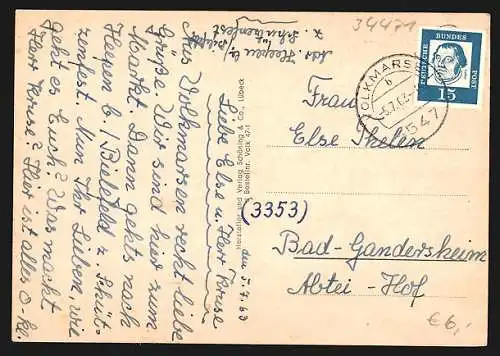 34471
Adr. Heepen b/ Bielefeld
z. Schützenfest
den 5.7.63
Liebe Else u. Herr Kruse
Aus Volkmarsen recht liebe
Grüße. Wir sind hier zum
Markt. Dann gehts nach
Heepen b./ Bielefeld z. Schüt-
zenfest. Nun Ihr Lieben, wie
geht es Euch? Was macht
Herr Kruse? Hier ist alles O-K.
Hersteller und Verlag Schöning & Co., Lübeck
Bestellnr. Volk 471
DEUTSCHE BUNDES POST
15
VOLKMARSEN
b
-5.7.63
3547
Frau
Else Thelen
(3353)
Bad-Gandersheim
Abtei-Hof
€6,-